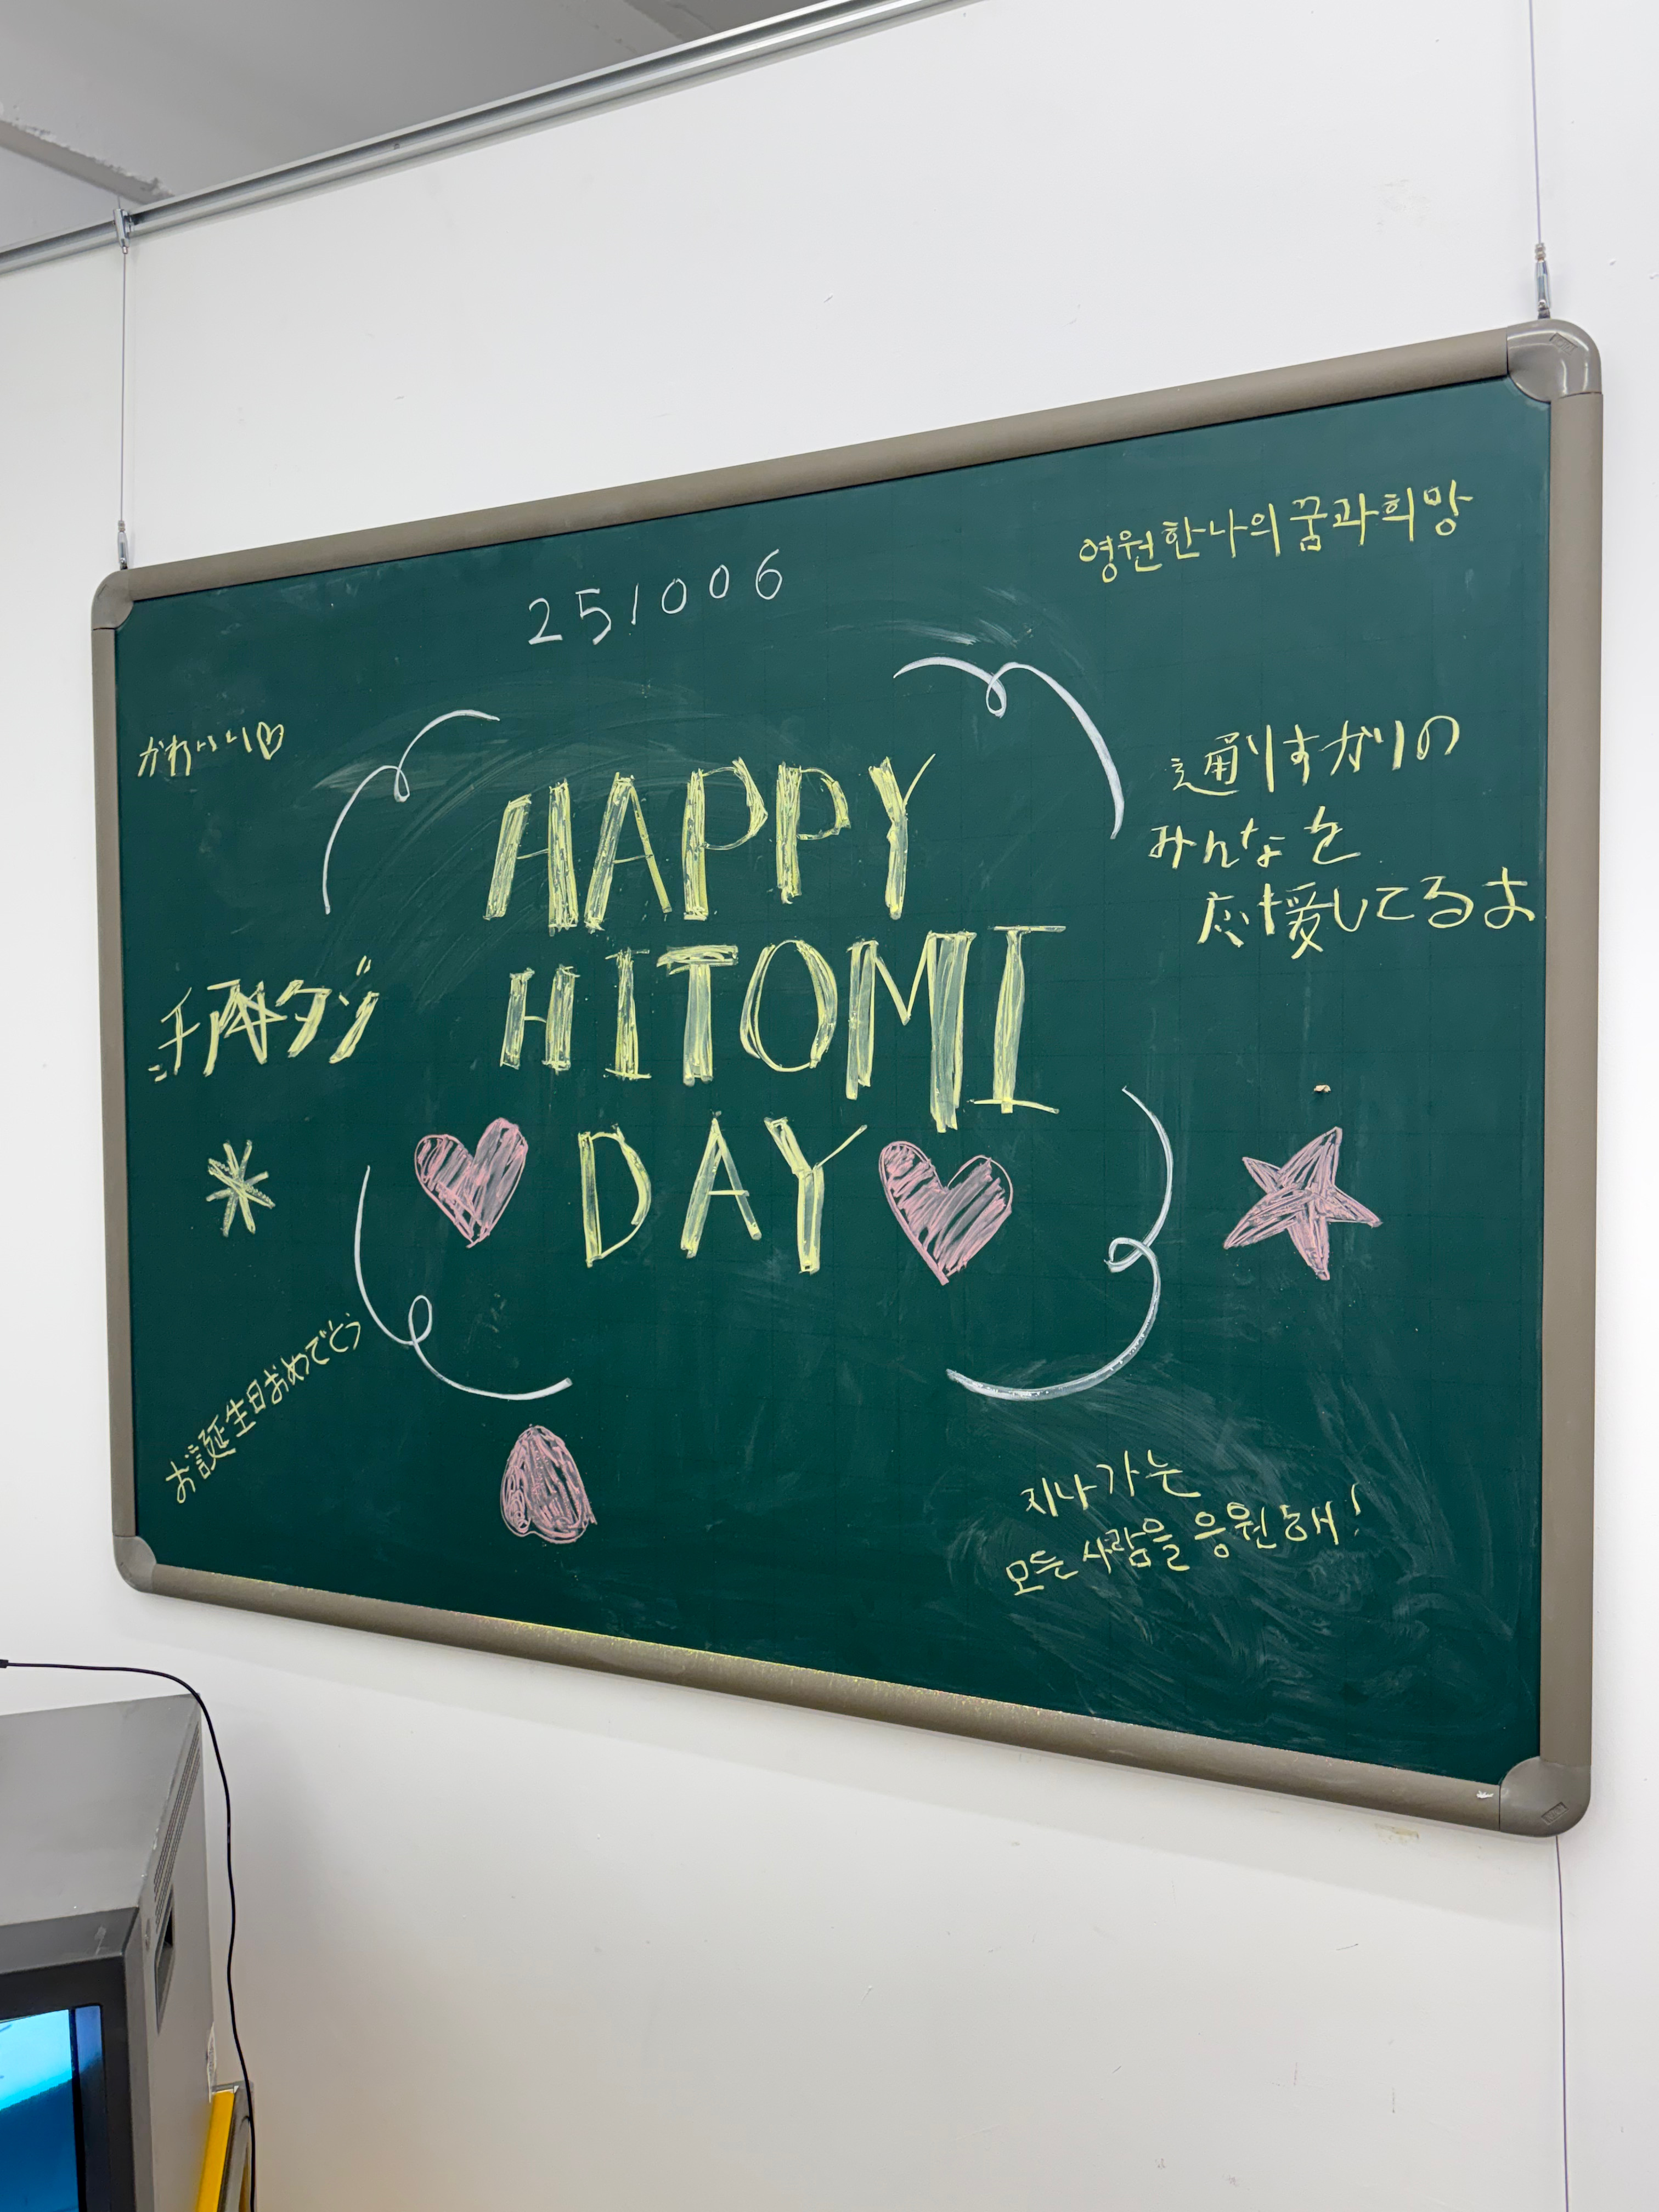 251006
영원한 나의 꿈과 희망
かわいい♡
HAPPY
HITOMI
DAY
通りすがりの
みんなを
応援してるよ
お誕生日おめでとう
지나가는
모든 사람을 응원해!